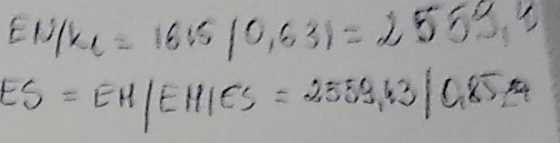 EN/kl = 1615 / 0,631 = 2559,4
ES = EH/EH/ES = 2559,43 / 0,857